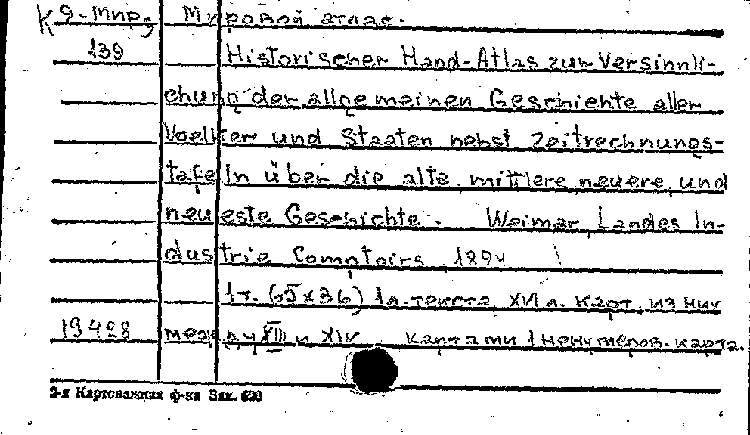 К 9-Мир, Мировой атлас.
139 Historischer Hand-Atlas zur Versinnli-
chung der allgemeinen Geschichte aller
Voelker und Staaten nebst Zeitrechnungs-
tafeln über die alte, mittlere, neuere, und
neueste Geschichte. Weimar, Landes In-
dustrie Comptoirs
1т. (55x36) 1л. текста, XVI л. карт, из них
19498 между XIII и XIV картами 1 ненумеров. карта.
2-я Картонажная ф-ка Зак. 620